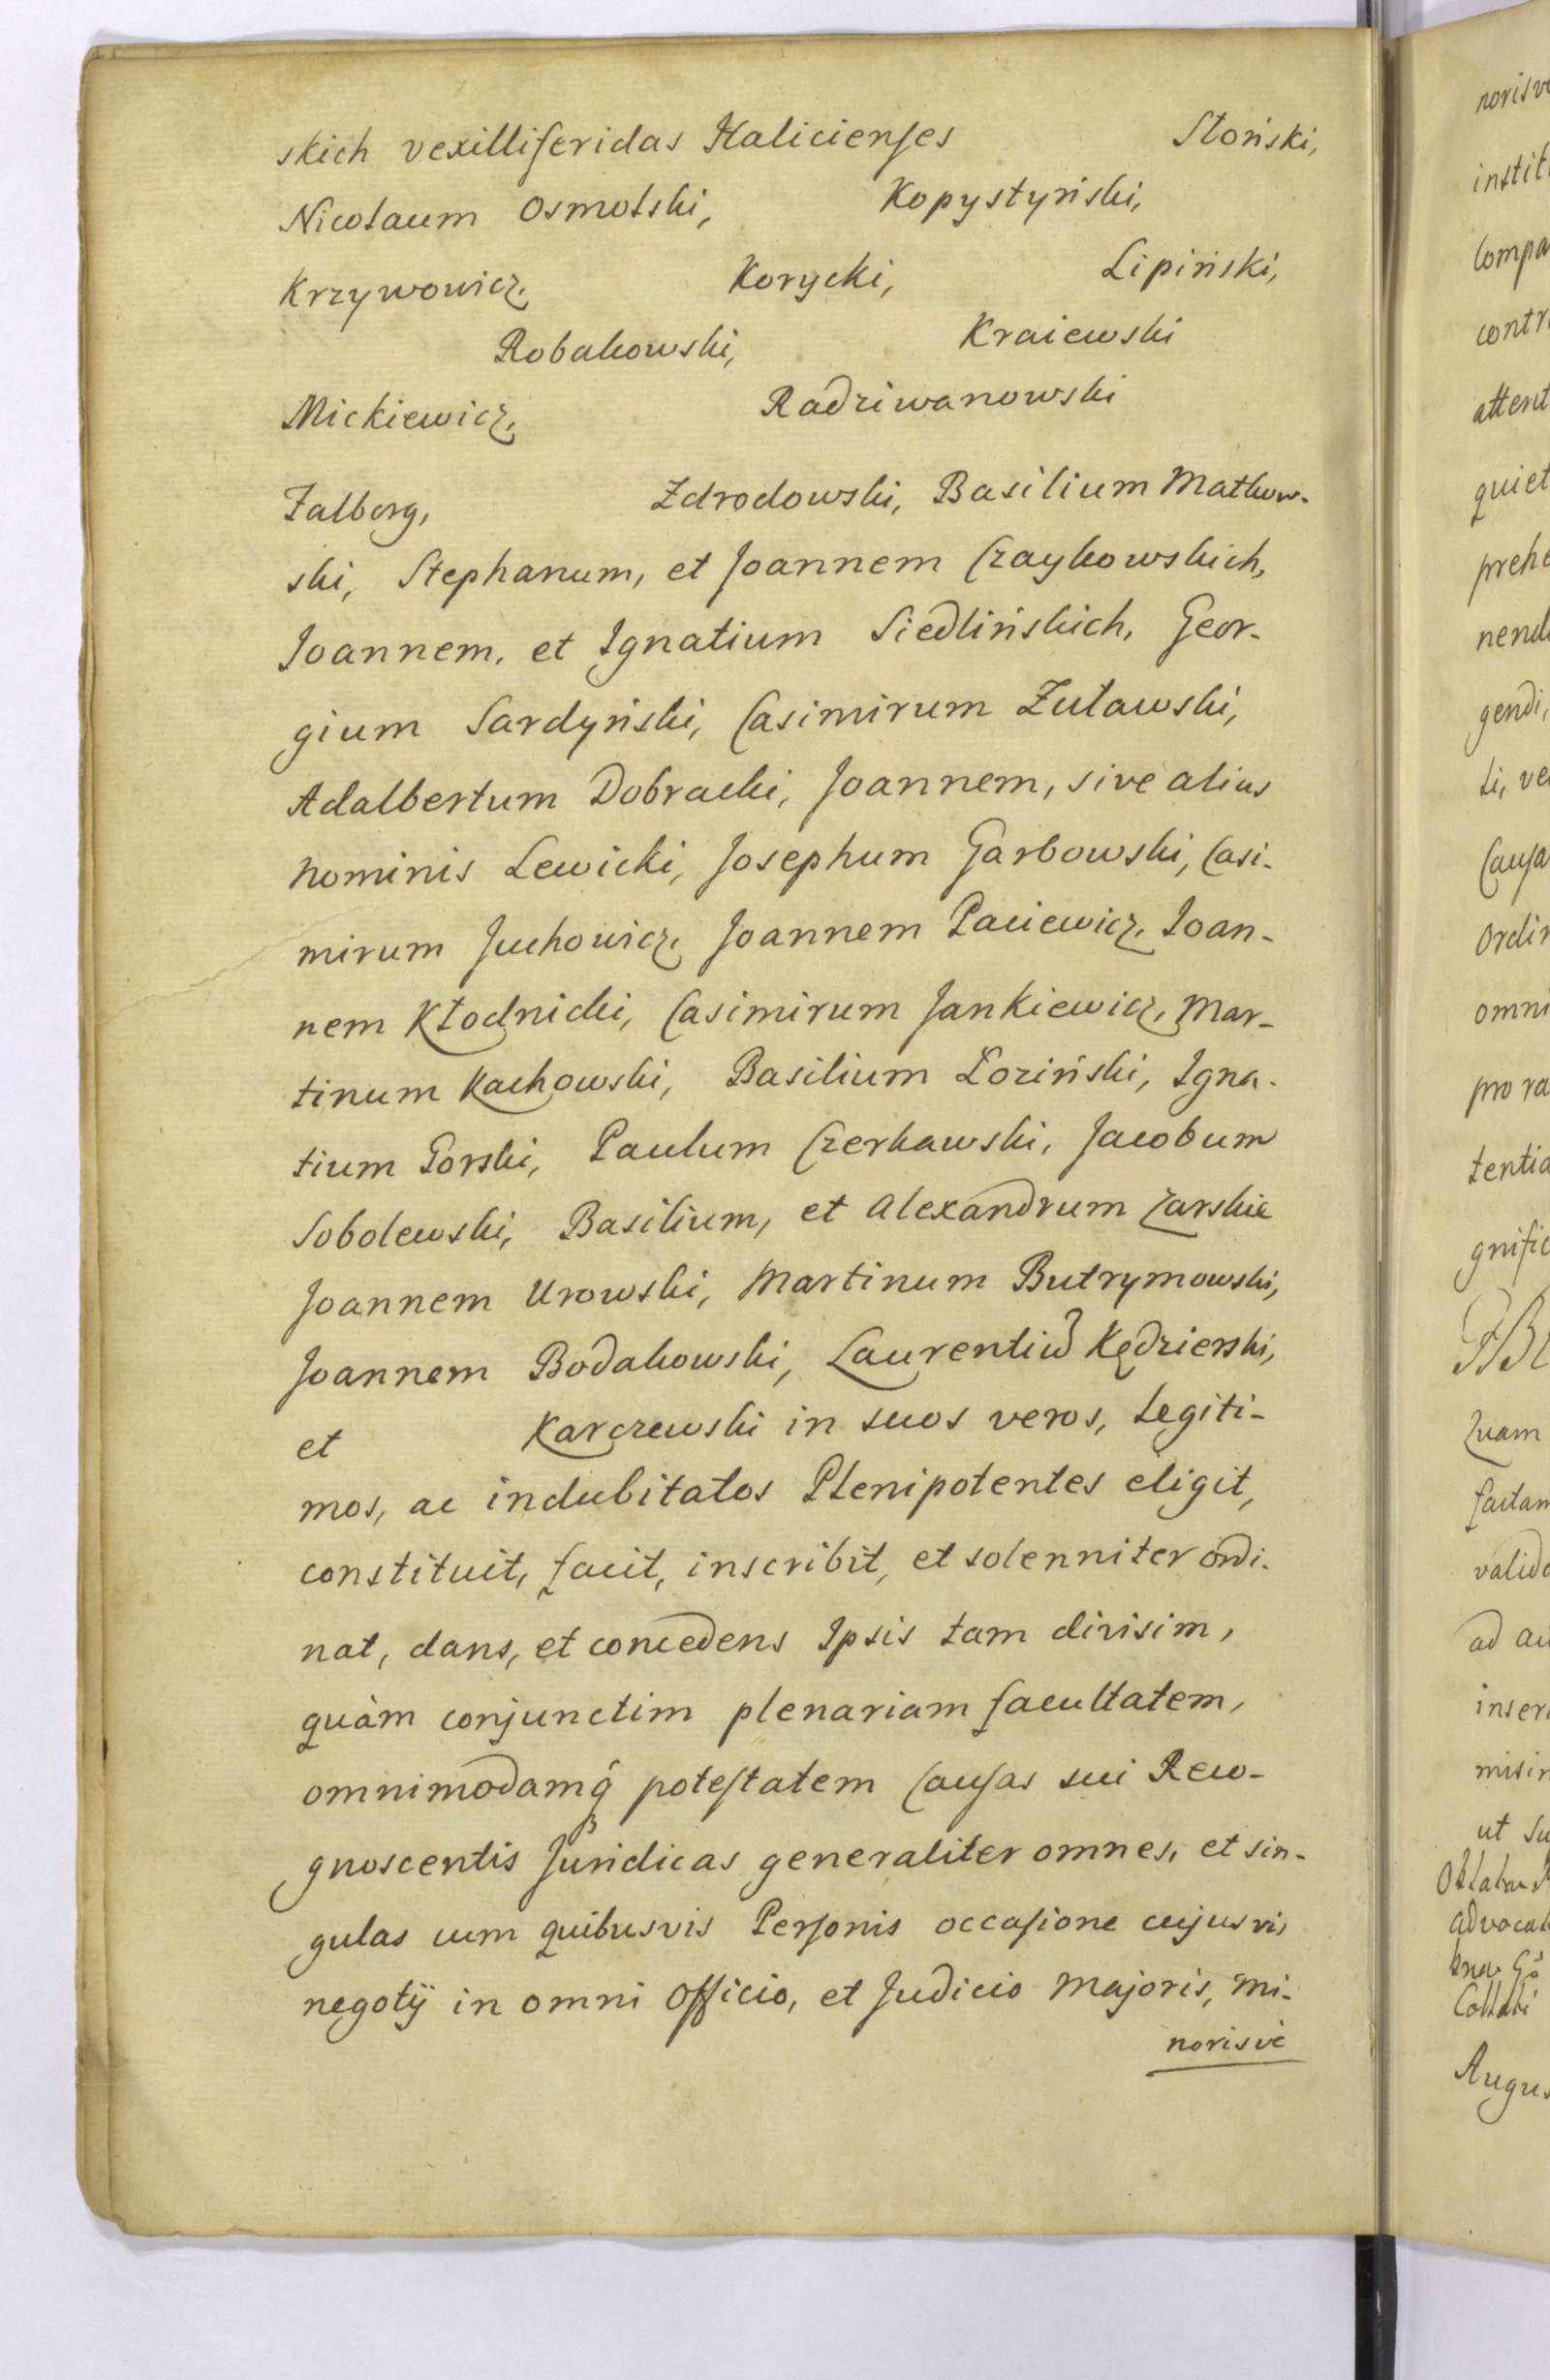 skich vexilliferidas Halicienses Stoński,
Nicolaum Osmolski, Kopystyński,
Krzywowicz, Korycki, Lipiński,
Robakowski, Kraiewski
Mickiewicz, Radziwanowski
Falberg, Zdrodowski, Basilium Matkow-
ski, Stephanum, et Joannem Czaykowskich,
Joannem, et Ignatium Siedlińskich, Geor-
gium Sardyński, Casimirum Żuławski,
Adalbertum Dobracki, Joannem, sive alius
nominis Lewicki, Josephum Garbowski, Casi-
mirum Juchowicz, Joannem Paciewicz, Joan-
nem Kłodnicki, Casimirum Jankiewicz, Mar-
tinum Kachowski, Basilium Łoziński, Igna-
tium Gorski, Paulum Czerkawski, Jacobum
Sobolewski, Basilium, et Alexandrum Zarskie
Joannem Urowski, Martinum Butrymowski,
Joannem Bodakowski, Laurentiu͂ Kędzierski,
et Karczewski in suos veros, legiti-
mos, ac indubitatos Plenipotentes eligit,
constituit, facit, inscribit, et solenniter ordi-
nat, dans, et concedens Ipsis tam divisim,
quàm conjunctim plenariam facultatem,
omnimodamq́ potestatem Causas sui Reco-
gnoscentis Juridicas generaliter omnes, et sin-
gulas cum quibusvis Personis occasione cujusvis
negotÿ in omni Officio, et Judicio Majoris, Mi-
norisvè
norisv
instit
Compa
contr
attent
quiet
prehe
nend
gendi,
li, ve
Causa
Ordin
omni
pro ra
tentia
gnific
Quam
factam
valida
ad ac
inser
misin
ut su
advocat
Augus